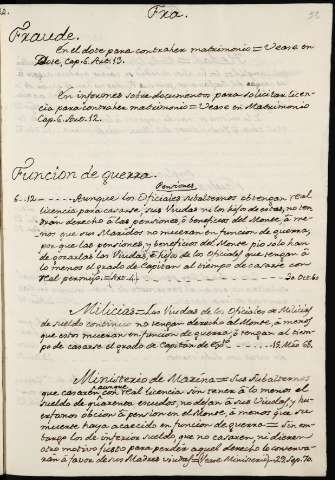 Fra.
Fraude.
En el dote para contraher matrimonio = Vease en
Dote, Cap. 6. Art. 13.
En informes sobre documentos para solicitar licen-
cia para contraher matrimonio = Vease en Matrimonio
Cap. 6. Art. 12.
Funcion de guerra.
Pensiones
6 .. 12 - - - - - - Aunque los Oficiales subalternos obtengan real
licencia para casarse, sus Viudas ni los hijos de estas, no ten-
drán derecho á las pensiones, ó beneficios del Monte, á me-
nos que sus Maridos no mueran en funcion de guerra,
porque las pensiones, y beneficios del Monte pio solo han
de gozarlas las Viudas, é hijos de los Oficiales que tengan á
lo menos el grado de Capitan al tiempo de casarse con
Real permiso = Art. 4
Milicias = Las Viudas de los Oficiales de Milicias
de sueldo continuo no tengan derecho al Monte, á menos
que estos mueran en funcion de guerra, ó tengan al tiem-
po de casarse el grado de Capitán de Exto - - - - 19. Mzo. 68.
Ministerio de Marina = Sus Subalternos
aunque
que casaren con real licencia sin tener á lo menos el
sueldo de quarenta escudos, no dejan á sus Viudas, y hu-
erfanos obcion á pension en el Monte, á menos que su
muerte haya acaecido en funcion de guerra = Sin em-
bargo los de inferior sueldo, que no casaren, ni dieren
otro motivo justo para perder aquel derecho lo conserva-
rán á favor de sus Madres viudas = (Vease Ministerio) - 29. Sep. 70.